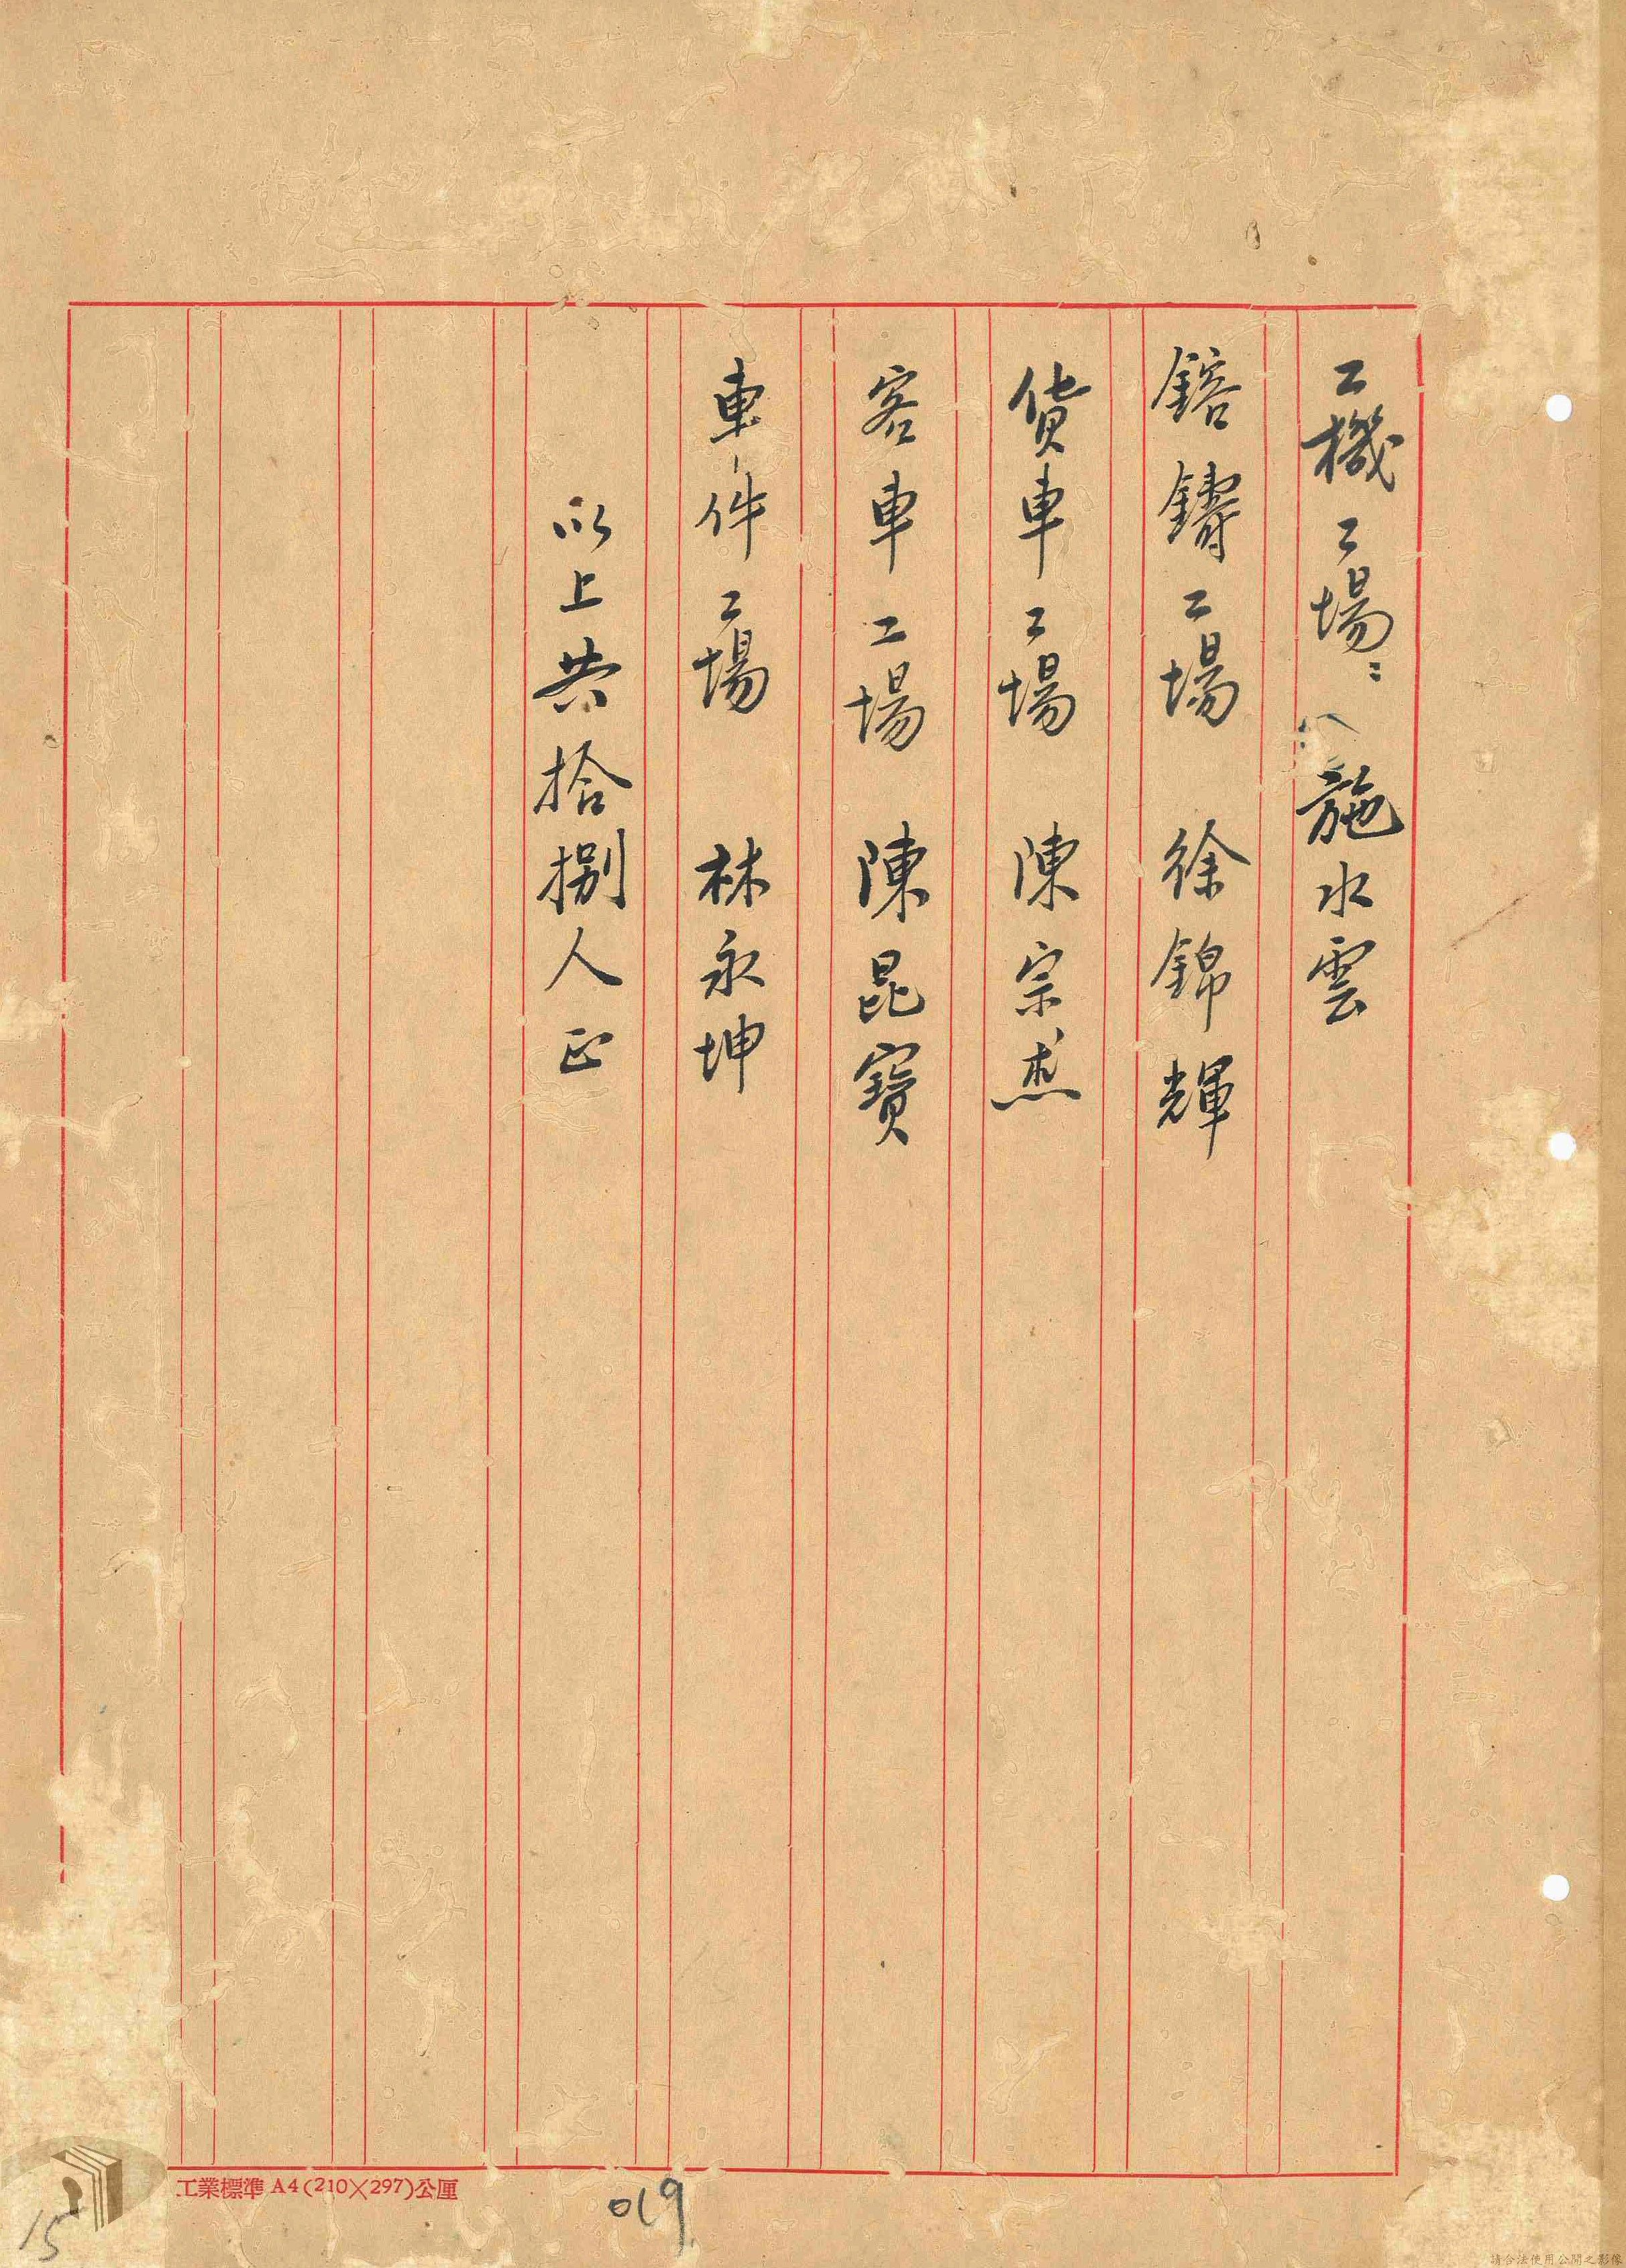 工機工場：施水雲
鎔鑄工場　徐錦輝
貨車工場　陳宗杰
客車工場　陳昆寶
車件工場　林永坤
以上共拾捌人正
工業標準A4(210×297)公厘
019
15
請合法使用公開之影像